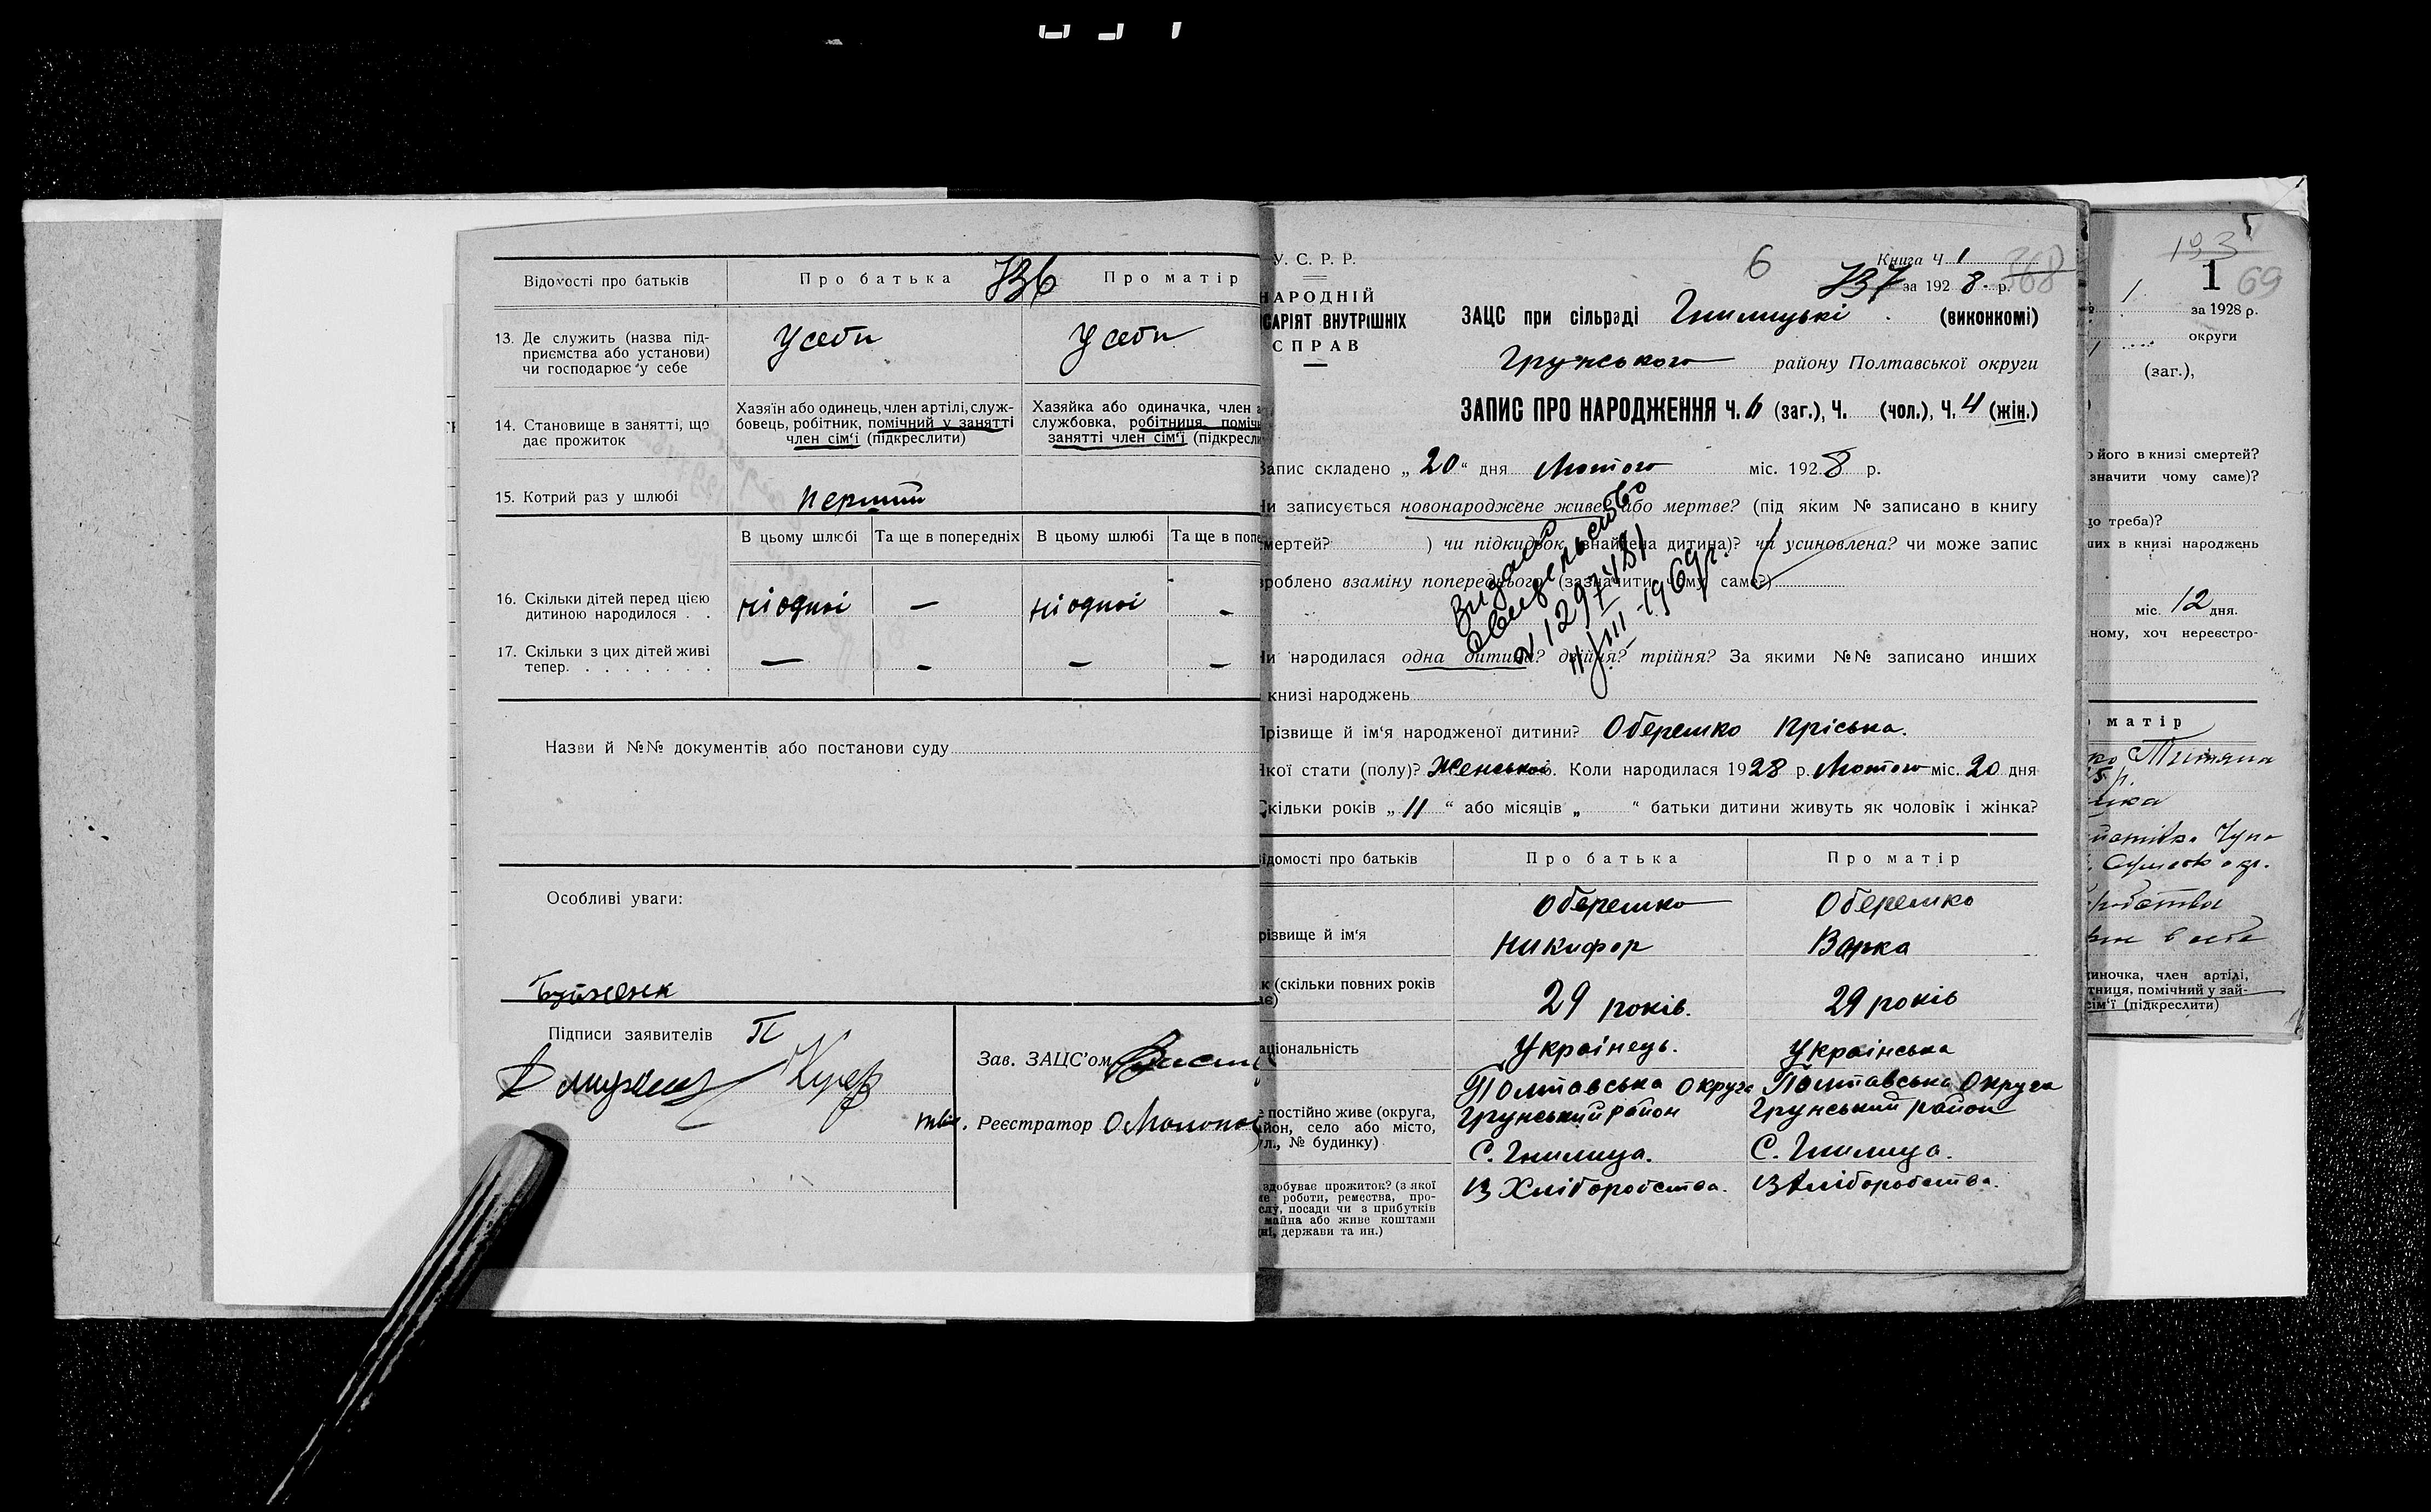 Відомості про батьків
Про батька
736
Про матір
13. Де служить (назва під-
приємства або установи)
чи господарює у себе
У себе
У себе
14. Становище в занятті, що
дає прожиток
Хазяїн або одинець, член артілі, служ-
бовець, робітник, помічний у занятті
член сім'ї (підкреслити)
Хазяйка або одиначка, член
службовка, робітниця, поміч
занятті член сім'ї (підкресли
15. Котрий раз у шлюбі
перший
В цьому шлюбі
Та ще в попередніх
В цьому шлюбі
Та ще в попе
16. Скільки дітей перед цією
дитиною народилося . .
ні одної
—
ні одної
-
17. Скільки з цих дітей живі
тепер. . . . . . . .
—
-
-
-
Назви й №№ документів або постанови суду
Особливі уваги:
Підписи заявителів
Зав. ЗАЦС'ом
Реєстратор
У. С. Р. Р.
НАРОДНІЙ
САРІЯТ ВНУТРІШНІХ
СПРАВ
6
Книга Ч 1
737 за 1928 р.
368
ЗАЦС при сільраді Гнилицькі (виконкомі)
Грунського району Полтавської округи
ЗАПИС ПРО НАРОДЖЕННЯ Ч. 6 (заг.), Ч. (чол.), Ч. 4 (жін.)
Запис складено „ 20 “ дня Лютого міс. 1928 р.
Чи записується новонароджене живе? або мертве? (під яким № записано в книгу
смертей? ) чи підкидьок (знайдена дитина)? чи усиновлена? чи може запис
зроблено взаміну попереднього (зазначити чому саме?)
Чи народилася одна дитина? двійня? трійня? За якими №№ записано инших
книзі народжень
Видано
свидетельство
1297481
11/III-1969 г.
Прізвище й ім'я народженої дитини? Оберемко Пріська.
Якої стати (полу)? Женської. Коли народилася 1928 р. Лютого міс. 20 дня
Скільки років „ 11 “ або місяців „ “ батьки дитини живуть як чоловік і жінка?
ідомості про батьків
Про батька
Про матір
різвище й ім'я
Оберемко
Никифор
Оберемко
Варка
к (скільки повних років
ає)
29 років.
29 років
аціональність
Українець.
Українська
е постійно живе (округа,
айон, село або місто,
ул., № будинку)
Полтавська Округа
Грунський район
С. Гнилиця.
Полтавська Округа
Грунський район
С. Гнилиця.
здобуває прожиток? (з якої
ме роботи, ремества, про-
слу, посади чи з прибутків
майна або живе коштами
дні, держави та ин.)
Із Хліборобства.
Із Хліборобства.
193
1
69
1
за 1928 р.
округи
(заг.),
його в книзі смертей?
значити чому саме)?
що треба)?
ших в книзі народжень
міс. 12 дня.
ному, хоч нереєстро-
матір
Тетяна
5 р.
иночка, член артілі,
тниця, помічний у зай-
сім'ї (підкреслити)